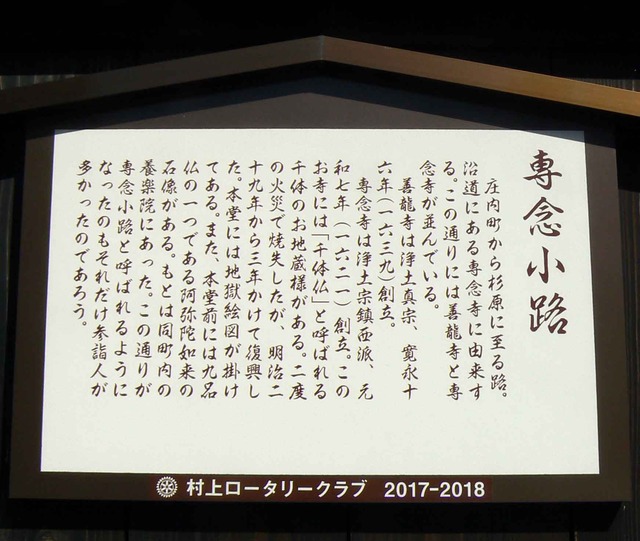 専念小路
庄内町から杉原に至る路。
沿道にある専念寺に由来す
る。この通りには善龍寺と専
念寺が並んでいる。
善龍寺は浄土真宗、寛永十
六年（一六三九）創立。
専念寺は浄土宗鎮西派、元
和七年（一六二一）創立。この
お寺には「千体仏」と呼ばれる
千体のお地蔵様がある。二度
の火災で焼失したが、明治二
十九年から三年かけて復興し
た。本堂には地獄絵図が掛け
てある。また、本堂前には九品
仏の一つである阿弥陀如来の
石像がある。もとは同町内の
養楽院にあった。この通りが
専念小路と呼ばれるように
なったのもそれだけ参詣人が
多かったのであろう。
村上ロータリークラブ 2017-2018